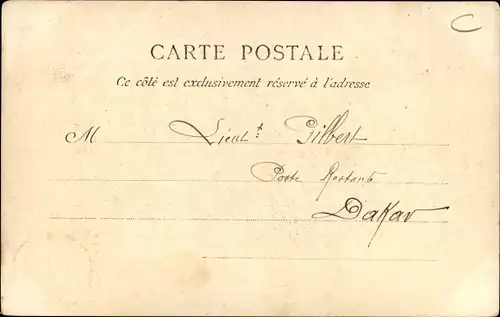 C
CARTE POSTALE
Ce côté est exclusivement réservé à l'adresse
M Lieut.t Gilbert
Poste Restante
Dakar